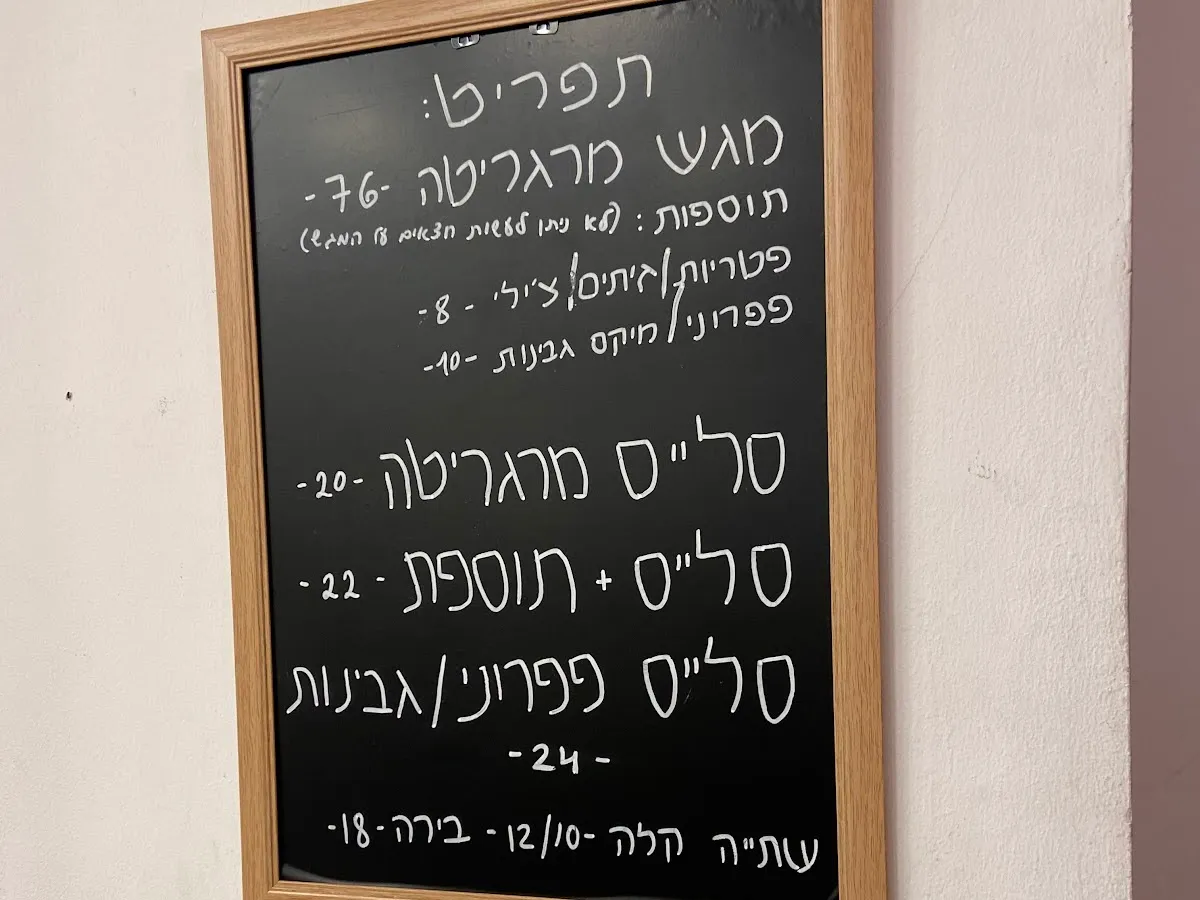 תפריט:
מגש מרגריטה -76-
תוספות: (לא ניתן לעשות חצאים על המגש)
פטריות/זיתים/צ'ילי -8-
פפרוני/מיקס גבינות -10-
סלייס מרגריטה -20-
סלייס + תוספת -22-
סלייס פפרוני/גבינות
-24-
שתייה קלה -12/10- בירה -18-